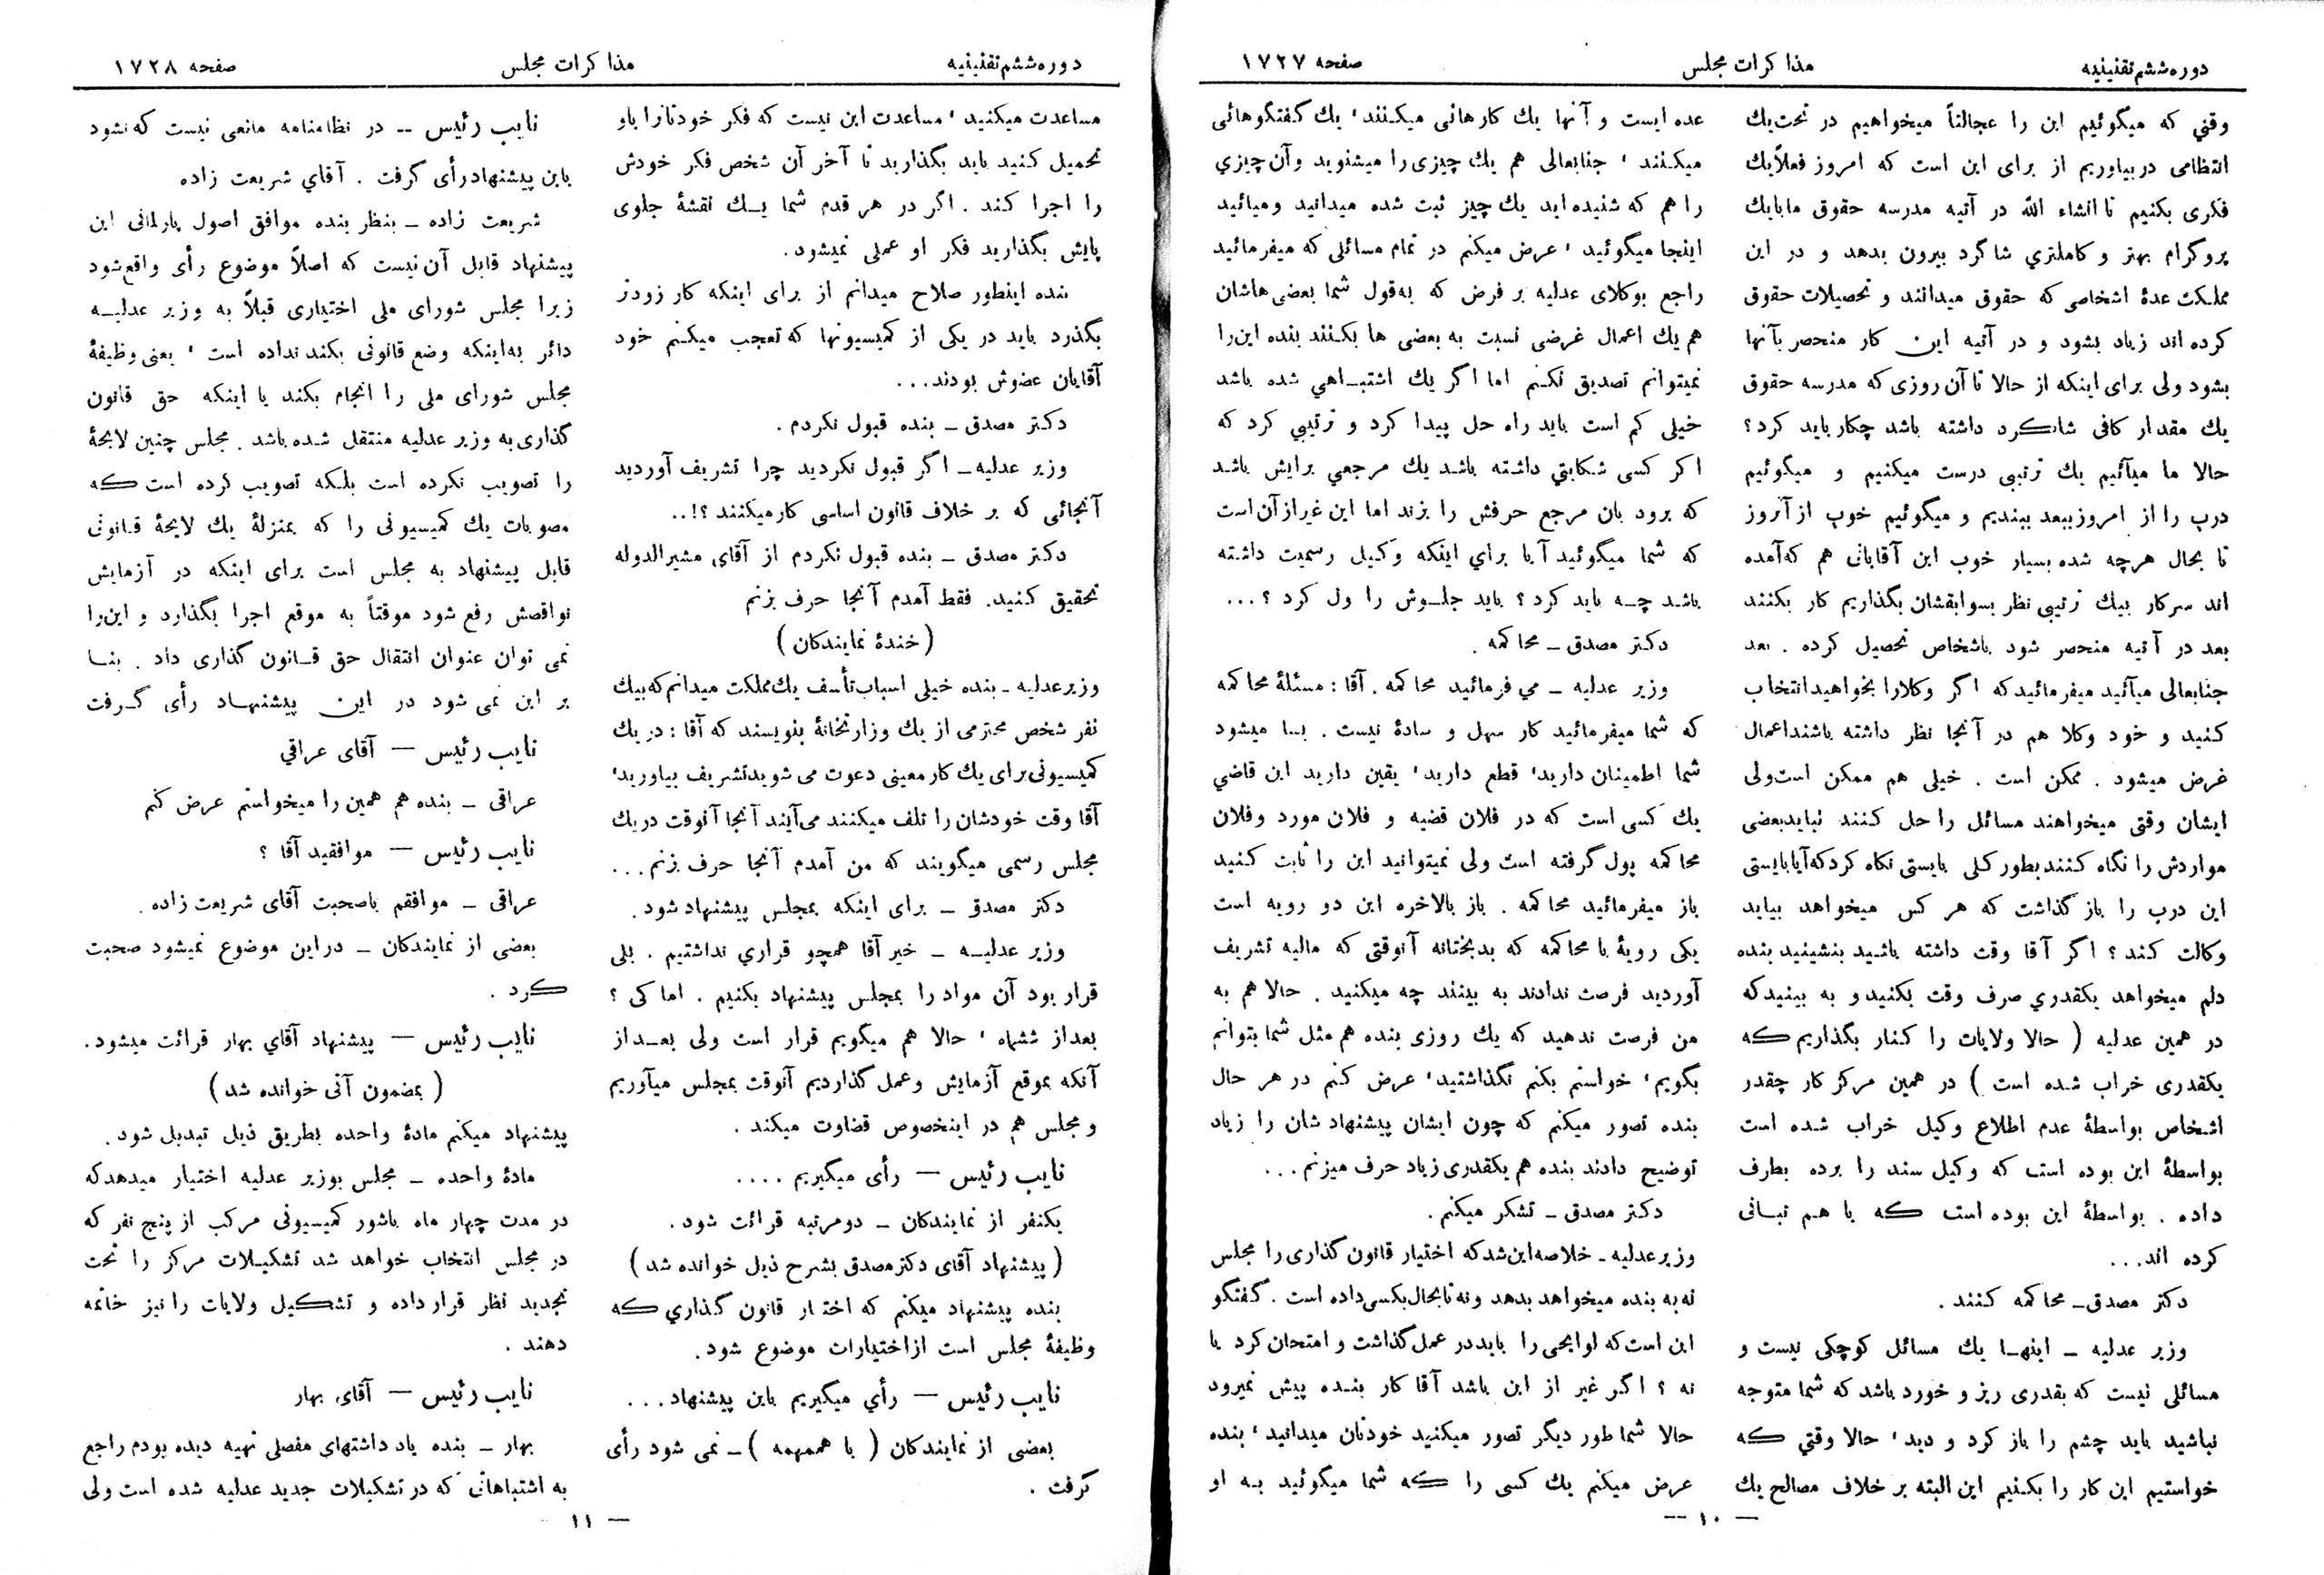 دوره ششم تقنینیه
مذاکرات مجلس
صفحه ۱۷۲۷
وقتی که میگوئیم این را عجالتاً میخواهیم در تحت یك
انتظامی در بیاوریم از برای این است که امروز فعلاً یك
فکری بکنیم تا انشاء الله در آتیه مدرسه حقوق ما با یك
پروگرام بهتر و کاملتری شاگرد بیرون بدهد و در این
مملکت عدۀ اشخاصی که حقوق میدانند و تحصیلات حقوق
کرده اند زیاد بشود و در آتیه این کار منحصر بآنها
بشود ولی برای اینکه از حالا تا آن روزی که مدرسه حقوق
یك مقدار کافی شاگرد داشته باشد چکار باید کرد؟
حالا ما میآئیم یك ترتیبی درست میکنیم و میگوئیم
درب را از امروز ببعد ببندیم و میگوئیم خوب از آنروز
تا بحال هر چه شده بسیار خوب این آقایانی هم که آمده
اند سر کار بیك ترتیبی نظر بسوابقشان بگذاریم کار بکنند
بعد در آتیه منحصر شود باشخاص تحصیل کرده . بعد
جنابعالی میآئید میفرمائید که اگر وکلا را بخواهید انتخاب
کنید و خود وکلا هم در آنجا نظر داشته باشند اعمال
غرض میشود . ممکن است . خیلی هم ممکن است ولی
ایشان وقتی میخواهند مسائل را حل کنند نباید بعضی
مواردش را نگاه کنند بطور کلی بایستی نگاه کرد که آیا بایستی
این درب را باز گذاشت که هر کس میخواهد بیاید
وکالت کند؟ اگر آقا وقت داشته باشید بنشینید بنده
دلم میخواهد یکقدری صرف وقت بکنید و به بینید که
در همین عدلیه ( حالا ولایات را کنار بگذاریم که
یکقدری خراب شده است ) در همین مرکز کار چقدر
اشخاص بواسطۀ عدم اطلاع وکیل خراب شده است
بواسطۀ این بوده است که وکیل سند را برده بطرف
داده . بواسطۀ این بوده است که با هم تبانی
کرده اند...
دکتر مصدق ــ محاکمه کنند .
وزیر عدلیه ــ اینها یك مسائل کوچکی نیست و
مسائلی نیست که بقدری ریز و خورد باشد که شما متوجه
نباشید باید چشم را باز کرد و دید، حالا وقتی که
خواستیم این کار را بکنیم این البته بر خلاف مصالح یك
عده ایست و آنها یك کارهائی میکنند، یك گفتگوهائی
میکنند، جنابعالی هم یك چیزی را میشنوید و آن چیزی
را هم که شنیده اید یك چیز ثبت شده میدانید و میائید
اینجا میگوئید، عرض میکنم در تمام مسائلی که میفرمائید
راجع بوکلای عدلیه بر فرض که به قول شما بعضی هاشان
هم یك اعمال غرضی نسبت به بعضی ها بکنند بنده این را
نمیتوانم تصدیق نکنم اما اگر یك اشتباهی شده باشد
خیلی کم است باید راه حل پیدا کرد و ترتیبی کرد که
اگر کسی شکایتی داشته باشد یك مرجعی برایش باشد
که برود بان مرجع حرفش را بزند اما این غیر از آن است
که شما میگوئید آیا برای اینکه وکیل رسمیت داشته
باشد چه باید کرد؟ باید جلوش را ول کرد؟...
دکتر مصدق ــ محاکمه .
وزیر عدلیه ــ می فرمائید محاکمه . آقا: مسئلۀ محاکمه
که شما میفرمائید کار سهل و سادۀ نیست . بسا میشود
شما اطمینان دارید، قطع دارید، یقین دارید این قاضی
یك کسی است که در فلان قضیه و فلان مورد و فلان
محاکمه پول گرفته است ولی نمیتوانید این را ثابت کنید
باز میفرمائید محاکمه . باز بالاخره این دو رویه است
یکی رویۀ با محاکمه که بدبختانه آنوقتی که مالیه تشریف
آوردید فرصت ندادند به بینند چه میکنید . حالا هم به
من فرصت ندهید که یك روزی بنده هم مثل شما بتوانم
بگویم، خواستم بکنم نگذاشتید، عرض کنم در هر حال
بنده تصور میکنم که چون ایشان پیشنهاد شان را زیاد
توضیح دادند بنده هم یکقدری زیاد حرف میزنم...
دکتر مصدق ــ تشکر میکنم .
وزیر عدلیه ــ خلاصه این شد که اختیار قانون گذاری را مجلس
نه به بنده میخواهد بدهد و نه تا بحال بکسی داده است . گفتگو
این است که لوایحی را باید در عمل گذاشت و امتحان کرد یا
نه ؟ اگر غیر از این باشد آقا کار بنده پیش نمیرود
حالا شما طور دیگر تصور میکنید خودتان میدانید، بنده
عرض میکنم یك کسی را که شما میگوئید به او
ــ ۱۰ ــ
دوره ششم تقنینیه
مذاکرات مجلس
صفحه ۱۷۲۸
مساعدت میکنید، مساعدت این نیست که فکر خودتانرا باو
تحمیل کنید باید بگذارید تا آخر آن شخص فکر خودش
را اجرا کند . اگر در هر قدم شما یك نقشۀ جلوی
پایش بگذارید فکر او عملی نمیشود .
بنده اینطور صلاح میدانم از برای اینکه کار زودتر
بگذرد باید در یکی از کمیسیونها که تعجب میکنم خود
آقایان عضوش بودند...
دکتر مصدق ــ بنده قبول نکردم .
وزیر عدلیه ــ اگر قبول نکردید چرا تشریف آوردید
آنجائی که بر خلاف قانون اساسی کار میکنند؟!..
دکتر مصدق ــ بنده قبول نکردم از آقای مشیرالدوله
تحقیق کنید. فقط آمدم آنجا حرف بزنم
(خندۀ نمایندگان)
وزیر عدلیه ــ بنده خیلی اسباب تأسف یك مملکت میدانم که بیك
نفر شخص محترمی از یك وزارتخانۀ بنویسند که آقا: در یك
کمیسیونی برای یك کار معینی دعوت می شوید تشریف بیاورید،
آقا وقت خودشان را تلف میکنند می آیند آنجا آنوقت در یك
مجلس رسمی میگویند که من آمدم آنجا حرف بزنم...
دکتر مصدق ــ برای اینکه بمجلس پیشنهاد شود .
وزیر عدلیه ــ خیر آقا همچو قراری نداشتیم . بلی
قرار بود آن مواد را بمجلس پیشنهاد بکنیم . اما کی ؟
بعد از ششماه، حالا هم میگویم قرار است ولی بعد از
آنکه بموقع آزمایش و عمل گذاردیم آنوقت بمجلس میآوریم
و مجلس هم در اینخصوص قضاوت میکند .
نایب رئیس — رأی میگیریم ....
یکنفر از نمایندگان ــ دو مرتبه قرائت شود .
(پیشنهاد آقای دکتر مصدق بشرح ذیل خوانده شد)
بنده پیشنهاد میکنم که اختیار قانون گذاری که
وظیفۀ مجلس است از اختیارات موضوع شود .
نایب رئیس — رأی میگیریم باین پیشنهاد...
بعضی از نمایندگان ( با همهمه ) ــ نمی شود رأی
گرفت .
نایب رئیس ــ در نظامنامه مانعی نیست که نشود
باین پیشنهاد رأی گرفت . آقای شریعت زاده
شریعت زاده ــ بنظر بنده موافق اصول پارلمانی این
پیشنهاد قابل آن نیست که اصلاً موضوع رأی واقع شود
زیرا مجلس شورای ملی اختیاری قبلاً به وزیر عدلیه
دائر به اینکه وضع قانونی بکند نداده است، یعنی وظیفۀ
مجلس شورای ملی را انجام بکند یا اینکه حق قانون
گذاری به وزیر عدلیه منتقل شده باشد . مجلس چنین لایحۀ
را تصویب نکرده است بلکه تصویب کرده است که
مصوبات یك کمیسیونی را که بمنزلۀ یك لایحۀ قانونی
قابل پیشنهاد به مجلس است برای اینکه در آزمایش
نواقصش رفع شود موقتاً به موقع اجرا بگذارد و این را
نمی توان عنوان انتقال حق قانون گذاری داد . بنا
بر این نمی شود در این پیشنهاد رأی گرفت
نایب رئیس — آقای عراقی
عراقی ــ بنده هم همین را میخواستم عرض کنم
نایب رئیس — موافقید آقا ؟
عراقی ــ موافقم باصحبت آقای شریعت زاده .
بعضی از نمایندگان ــ در این موضوع نمیشود صحبت
کرد .
نایب رئیس — پیشنهاد آقای بهار قرائت میشود .
( بمضمون آتی خوانده شد)
پیشنهاد میکنم مادۀ واحده بطریق ذیل تبدیل شود .
مادۀ واحده ــ مجلس بوزیر عدلیه اختیار میدهد که
در مدت چهار ماه باشور کمیسیونی مرکب از پنج نفر که
در مجلس انتخاب خواهد شد تشکیلات مرکز را تحت
تجدید نظر قرار داده و تشکیل ولایات را نیز خاتمه
دهند .
نایب رئیس — آقای بهار
بهار ــ بنده یاد داشتهای مفصلی تهیه دیده بودم راجع
به اشتباهاتی که در تشکیلات جدید عدلیه شده است ولی
ــ ۱۱ ــ